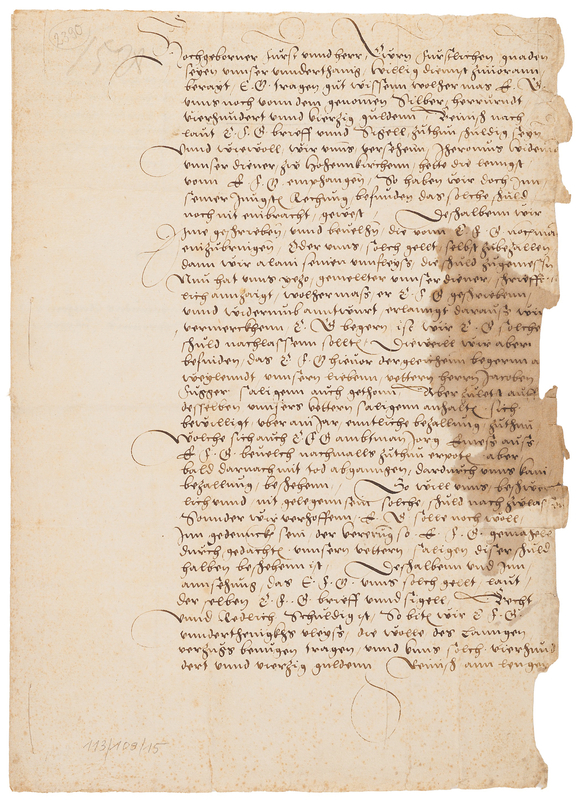 2390
Hochgeborner furst unnd herr, Ewrn furstlichen gnaden
seyen unnser unnderthanig willig dienst zuuor ann
berayt E. G. tragen gut wissenn wolher mas E. G.
unns noch vonn dem genomen Silber, herrurndt
vierhundert unnd vierzig guldenn Reinisch nach
laut E. F. G. brieff unnd Sigell zuthun schuldig seyn
unnd wiewoll, wir unns versehenn, Iheronimus
unnser diener, zw hohennkirchenn, hette die lenngst
vonn E. F. G. empfangen, So haben wir doch Inn
seiner Jungst Rechnung, befunden das solche schuld
noch nit einbracht, gewest, Deshalbenn wir
Ime geschriebenn, unnd beuelhen, die vonn E. F. G. nochmals
einzubringen, Oder unns, solch gellt selbst zubezallen
dann wir alain seinen unfleyss, die schuld zugemessen
Nun hat unns yezo, gemellter unnser diener, schrifft
lich annzaigt, wolher mass, er E. F. G. geschriebenn,
unnd widerumb anntwurt, erlanngt daraus wir
vermerckhenn, E. G. begern ist wir E. G. solche
schuld nachlassenn sollten, Diewall wir aber
befinden, das E. F. G. hieuor dergleichenn begerenn a
weylenndt unnsern liebenn, vettern herrn Jacoben
Fugger, saligenn auch gethonn, Aber zuletst
desselben unnsers vettern saligenn anhalten, sich
bewilligt, uber ain Jar, enntliche bezallung, zuthun
Wolche sich auch E. F. G. ambtman Jorg auss
E. F. G. beuelch nachmalls zuthun erpoten, aber
bald darnach mit tod abganngen, dardurch unns kain
bezallung, beschehenn, So will unns, beschwer
lich unnd, nit gelegenn sein solche, schuld nachzulassen
Sonnder wir verhoffenn E. G. sollen noch woll
Inn gedennckh sein, der vererung so E. F. G. gemahell
durch gedachten, unnsern vettern saligen diser schuld
halben beschehenn ist, Deshalbenn unnd Inn
annsehung, das E. F. G. unns solch gellt, laut
der selben E. F. G. brieff unnd sigell, Recht
unnd Redlich Schuldig ist, So biten wir E. F. G.
unndertheniglichs vleyss, die wolle des kainngen
verzugs benuigen tragen, unnd unns solch vierhun
dert unnd vierzig guldenn Reinisch ann lenger
113/108/15